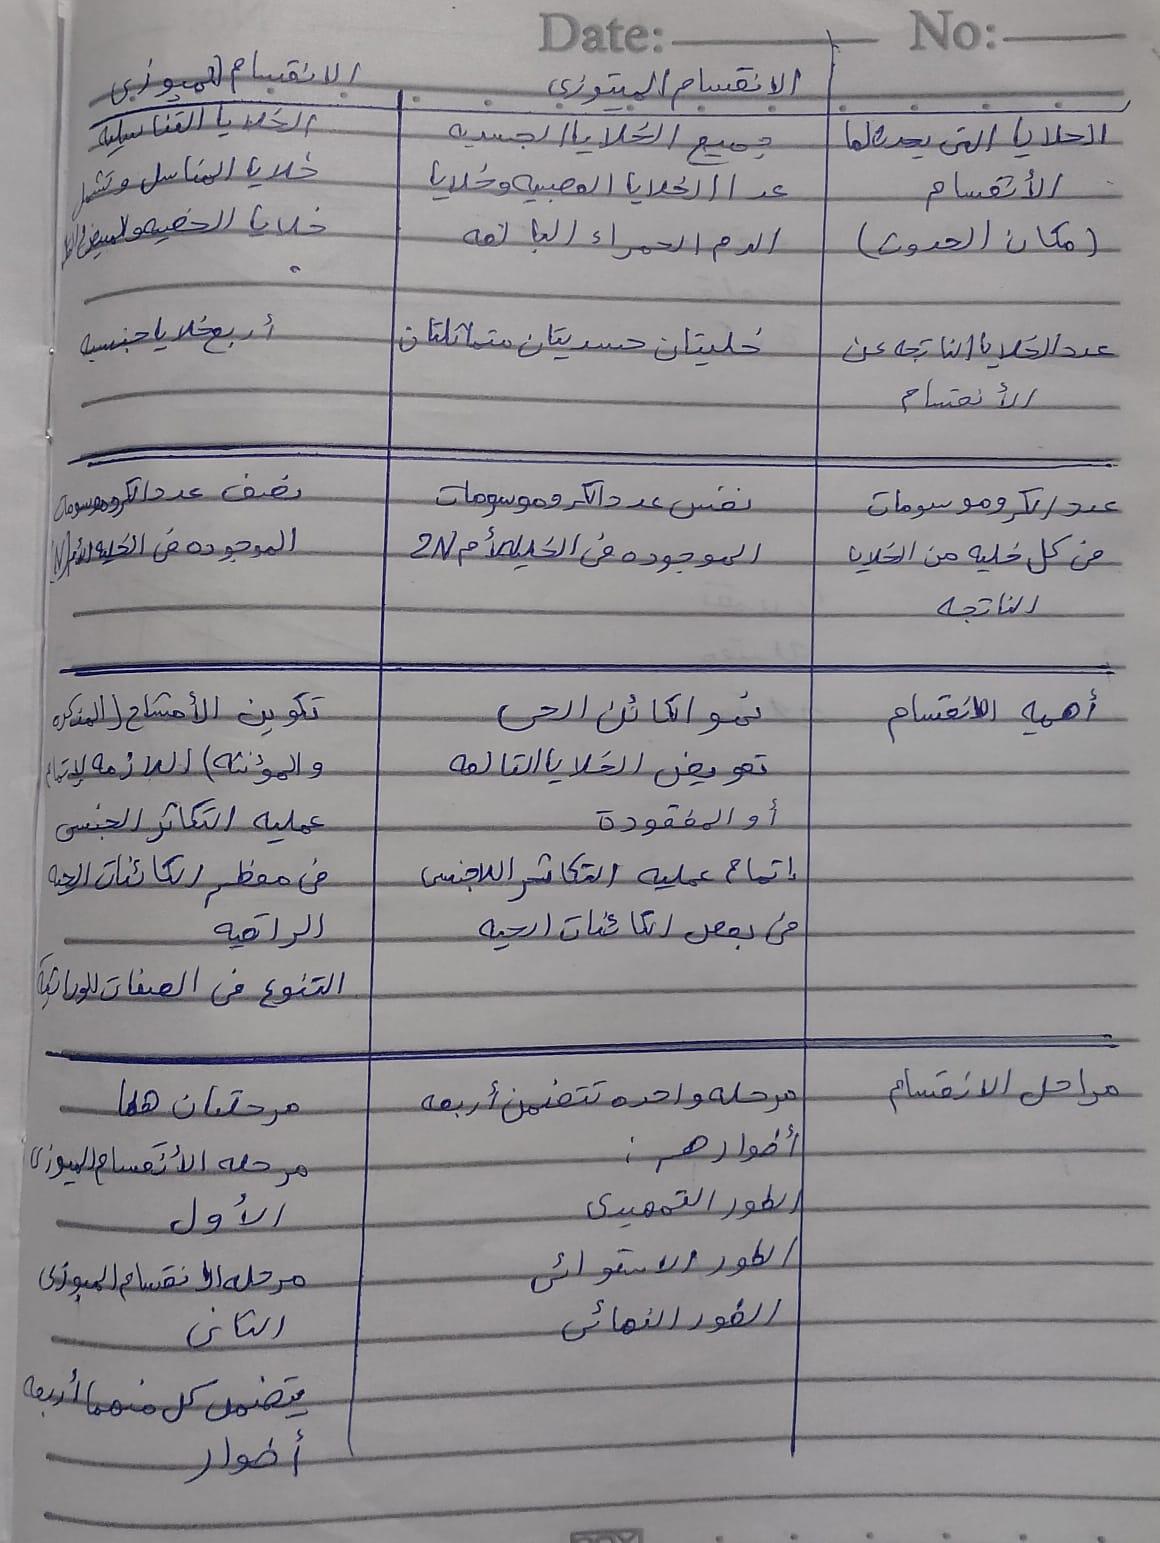 Date: No:
الانقسام الميتوزى
الانقسام الميوزى
الخلايا التى يحدث لها
الأنقسام
(مكان الحدوث)
جميع الخلايا الجسديه
عدا الخلايا العصبيه وخلايا
الدم الحمراء البالغه
الخلايا التناسليه
خلايا المناسل وتشمل
خلايا الخصيه والمبيض
عدد الخلايا الناتجه عن
الأنقسام
خليتان جسديتان متماثلتان
أربع خلايا جنسيه
عدد الكروموسومات
فى كل خليه من الخلايا
الناتجه
نفس عدد الكروموسومات
الموجوده فى الخليه الأم 2N
نصف عدد الكروموسومات
الموجوده فى الخليه الأم (N)
أهميه الانقسام
نمو الكائن الحى
تعويض الخلايا التالفه
أو المفقودة
إتمام عمليه التكاثر اللاجنسى
فى بعض الكائنات الحيه
تكوين الأمشاج (المذكره
والمؤنثه) اللازمه لإتمام
عمليه التكاثر الجنسى
فى معظم الكائنات الحيه
الراقيه
التنوع فى الصفات الوراثية
مراحل الانقسام
مرحله واحده تتضمن أربعه
أطوار هم:
الطور التمهيدى
الطور الاستوائى
الطور النهائى
مرحلتان هما
مرحله الأنقسام الميوزى
الأول
مرحله الانقسام الميوزى
الثانى
يتضمن كل منهما أربعه
أطوار